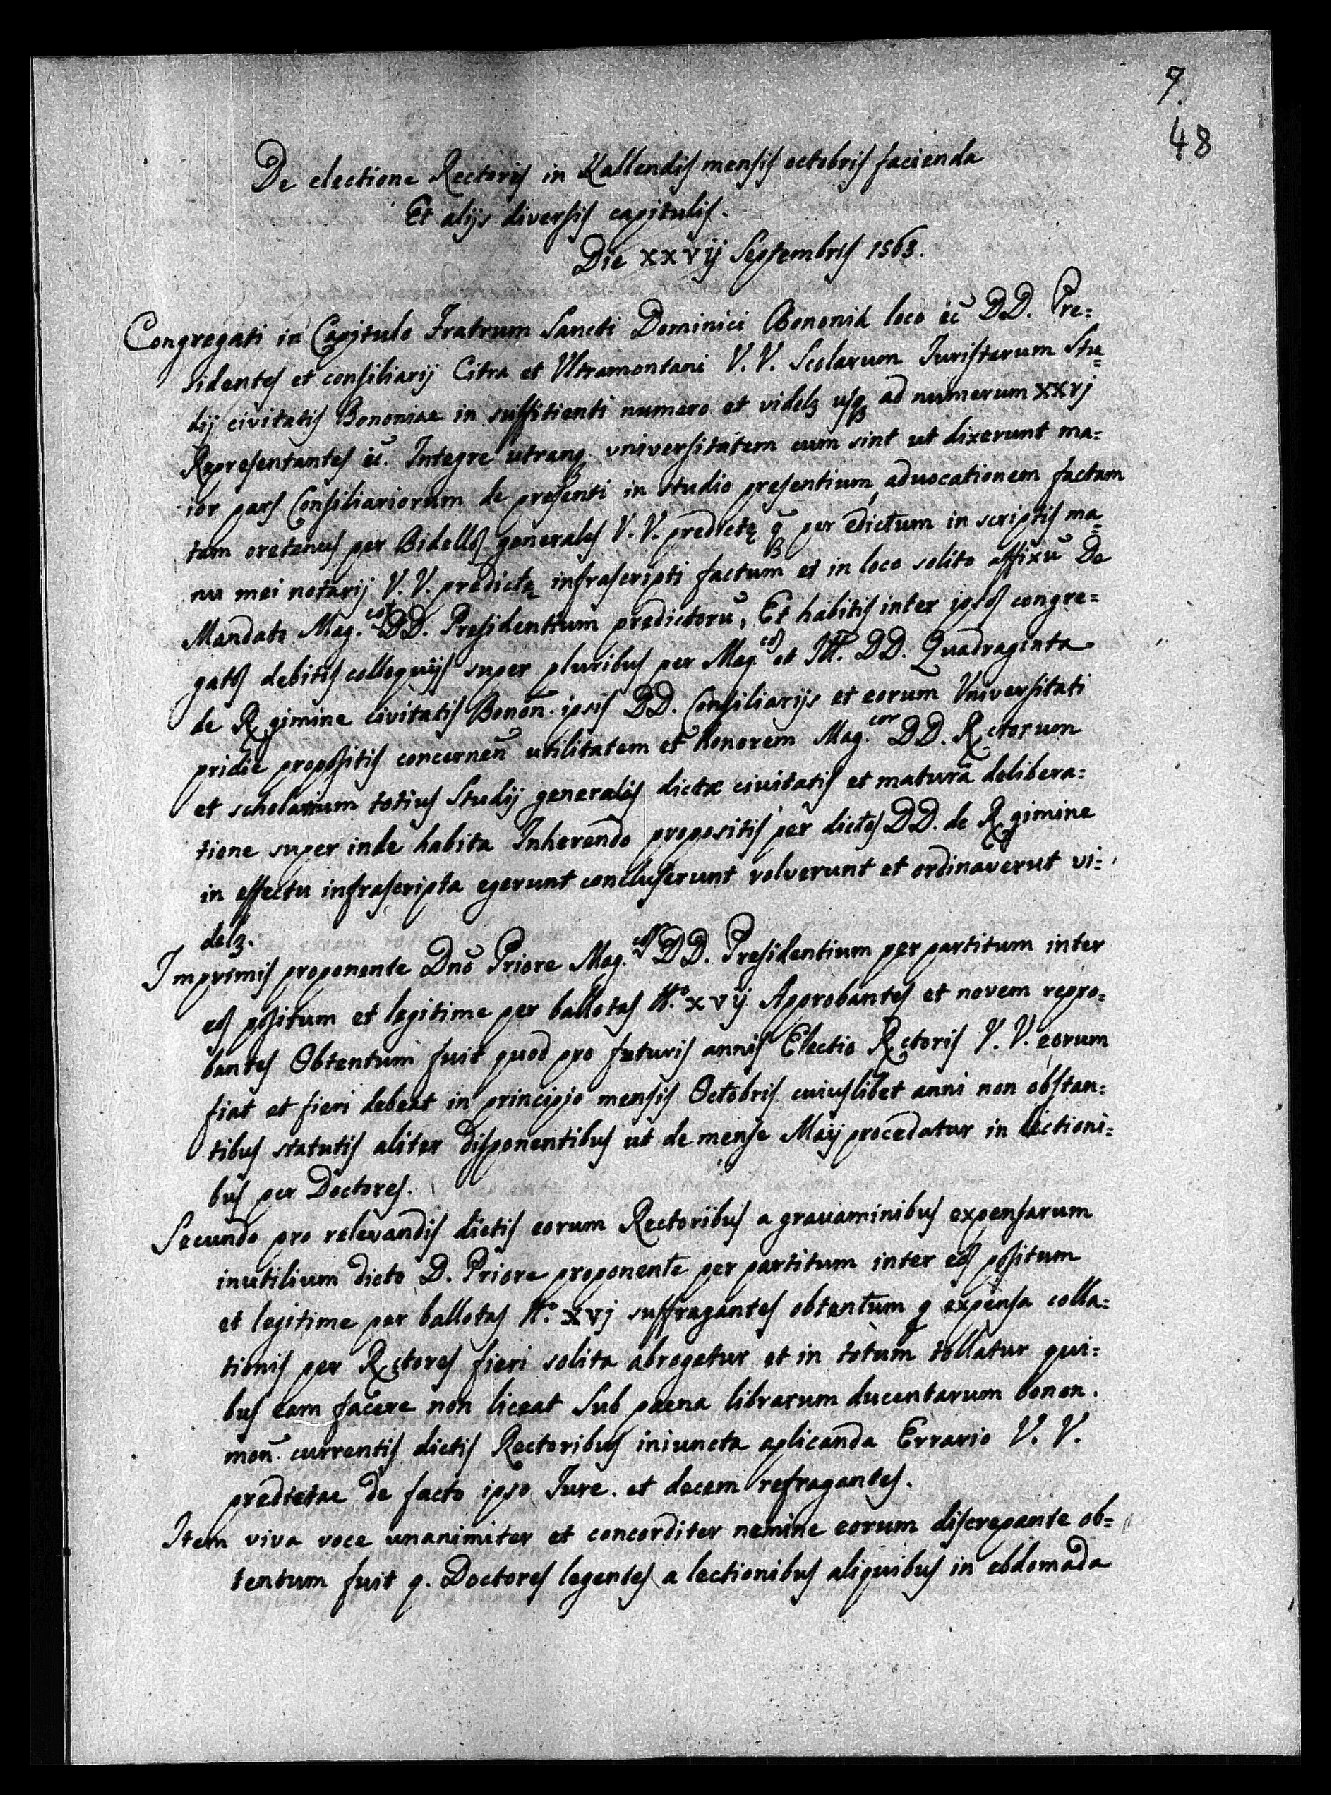 7.
48
De electione Rectoris in Kallendis mensis octobris facienda
Et alijs diversis capitulis.
Die xxvij Septembris 1563.
Congregati in Capitulo Fratrum Sancti Dominici Bononiæ loco &c. DD. Pre=
sidentes et consiliarij Citra et Ultramontani V. V. Scolarum Juristarum Stu=
dij civitatis Bononiae in suffitienti numero et videlz usq ad numerum xxvj
Representantes &c. Integre utranq. universitatem cum sint ut dixerunt ma=
ior pars Consiliariorum de presenti in studio presentium, advocationem factam
tam oretenus per Bidellos generales V. V. predictę q per edictum in scriptis ma=
nu mei notarij V. V. predictę infrascripti factum et in loco solito affixū De
Mandato Mag.cor DD. Presidentium predictorū, Et habitis inter ipsos congre=
gatos debitis colloquijs super pluribus per Mag.cos et Ill. DD. Quadraginta
de Regimine civitatis Bonon. ipsis DD. Consiliarijs et eorum Universitati
pridie propositis concernen utilitatem et honorem Mag.cor DD. Rectorum
et scholarium totius Studij generalis dictæ civitatis et matura delibera=
tione super inde habita Inherendo propositis per dictos DD. de Regimine
in effectu infrascripta egerunt concluserunt volverunt et ordinaverut vi=
delz.
Imprimis proponente Dno Priore Mag.cor DD. Presidentium per partitum inter
eos positum et legitime per ballotas N.o xvij Aporobantes et novem repro=
bantes Obtentum fuit quod pro futuris annis Electio Rectoris V. V. eorum
fiat et fieri debeat in principio mensis Octobris cuiuslibet anni non obstan=
tibus statutis aliter disponentibus ut de mense Maij procedatur in lectioni=
bus per Doctores.
Secundo pro relevandis dictis eorum Rectoribus a gravaminibus expensarum
inutilium dicto D. Priore proponente per partitum inter eos positum
et legitime per ballotas N.o xvj suffragantes obtentum q expensa colla=
tionis per Rectores fieri solita abrogetur et in totum tollatur qui=
bus eam facere non liceat Sub paena librarum ducentarum bonon.
mon. currentis dictis Rectoribus iniuncta aplicanda Errario V. V.
predictae de facto ipso Iure. et decem refragantes.
Item viva voce unanimiter et concorditer nemine eorum discrepante ob=
tentum fuit q. Doctores legentes a lectionibus aliquibus in ebdomada